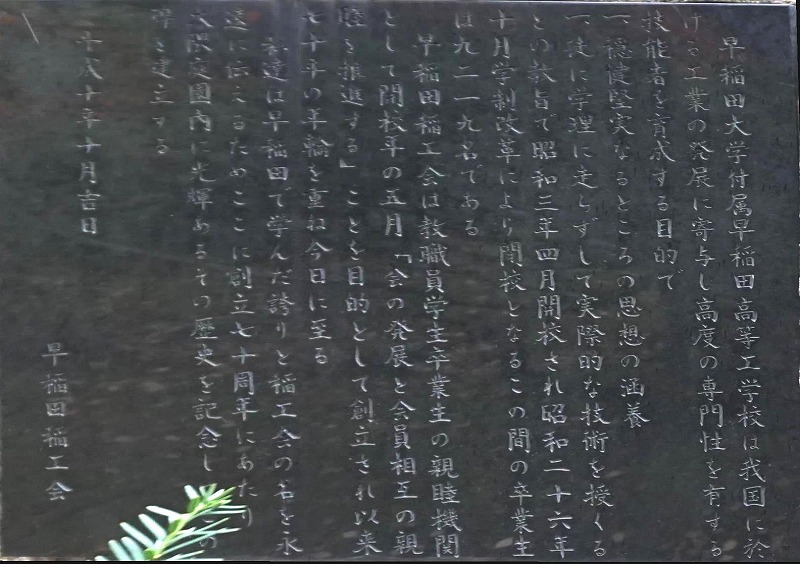 早稲田大学付属早稲田高等工学校は我国に於
ける工業の発展に寄与し高度の専門性を有する
技能者を育成する目的で
一、穏健堅実なるところの思想の涵養
一、徒に学理に走らずして実際的な技術を授くる
との教旨で昭和三年四月開校され昭和二十六年
十月学制改革により閉校となるこの間の卒業生
は九二一九名である
早稲田稲工会は教職員学生卒業生の親睦機関
として開校年の五月「会の発展と会員相互の親
睦を推進する」ことを目的として創立され以来
七十年の年輪を重ね今日に至る
私達は早稲田で学んだ誇りと稲工会の名を永
遠に伝えるためここに創立七十周年にあたり
大隈庭園内に光輝あるその歴史を記念し の
碑を建立する
平成十年十月吉日
早稲田稲工会